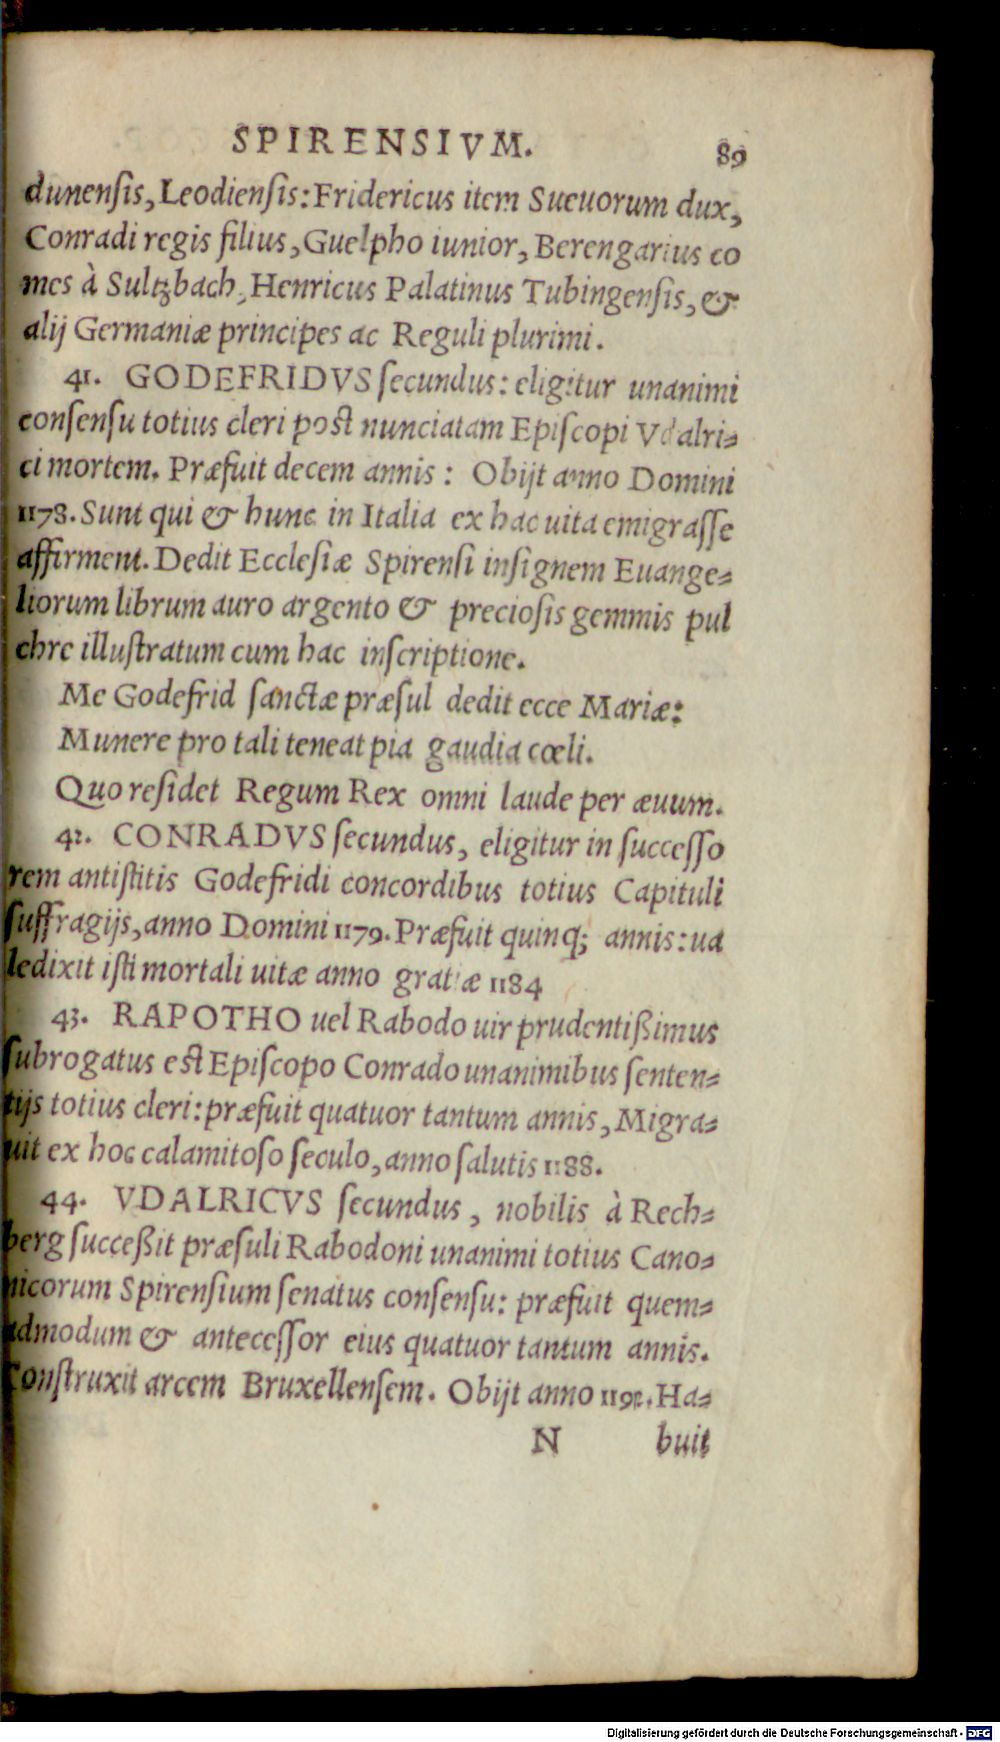 SPIRENSIVM. 89
dunenſis, Leodienſis: Fridericus item Sueuorum dux,
Conradi regis filius, Guelpho iunior, Berengarius co
mes à Sultzbach, Henricus Palatinus Tubingenſis, &
alij Germaniæ principes ac Reguli plurimi.
41. GODEFRIDVS ſecundus: eligitur unanimi
conſenſu totius cleri post nunciatam Epiſcopi Vdalri-
ci mortem. Præfuit decem annis: Obijt anno Domini
1178. Sunt qui & hunc in Italia ex hac uita emigraſſe
affirment. Dedit Eccleſiæ Spirenſi inſignem Euange-
liorum librum auro argento & precioſis gemmis pul
chre illuſtratum cum hac inſcriptione.
Me Godefrid ſanctæ præſul dedit ecce Mariæ:
Munere pro tali teneat pia gaudia cœli.
Quo reſidet Regum Rex omni laude per æuum.
42. CONRADVS ſecundus, eligitur in ſucceſſo
rem antiſtitis Godefridi concordibus totius Capituli
ſuffragijs, anno Domini 1179. Præfuit quinq; annis: ua
ledixit iſti mortali uitæ anno gratiæ 1184
43. RAPOTHO uel Rabodo uir prudentißimus
ſubrogatus est Epiſcopo Conrado unanimibus ſenten-
tijs totius cleri: præfuit quatuor tantum annis, Migra-
uit ex hoc calamitoſo ſeculo, anno ſalutis 1188.
44. VDALRICVS ſecundus, nobilis à Rech-
berg ſucceßit præſuli Rabodoni unanimi totius Cano-
nicorum Spirenſium ſenatus conſenſu: præfuit quem-
admodum & anteceſſor eius quatuor tantum annis.
Conſtruxit arcem Bruxellenſem. Obijt anno 1192. Ha-
N buit
Digitalisierung gefördert durch die Deutsche Forschungsgemeinschaft - DFG